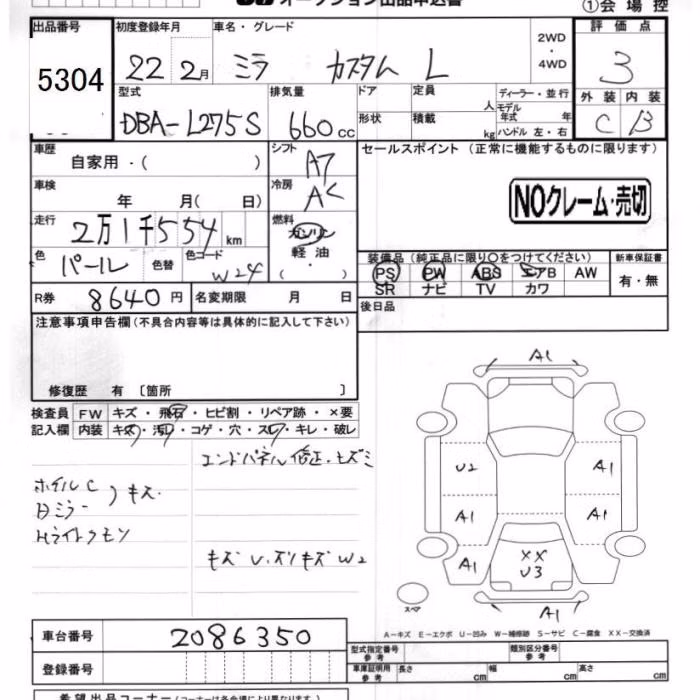 オークション出品申込書
①会場控
出品番号 初度登録年月 車名・グレード 2WD・4WD 評価点
5304 22 2月 ミラ カスタム L 3
型式 排気量 ドア 定員 人 ディーラー・並行 外装 内装
DBA-L275S 660cc 形状 積載 kg モデル年式 年 ハンドル 左・右 C B
車歴 自家用・( ) シフト A7 セールスポイント (正常に機能するものに限ります)
車検 年 月( 日) 冷房 AC
NOクレーム・売切
走行 2万1千554km 燃料 ガソリン 軽油 ( ・ )
色 パール 色替 色コード W24
装備品 (純正品に限り○をつけてください) 新車保証書
PS PW ABS エアB AW 有・無
SR ナビ TV カワ
R券 8640円 名変期限 月 日 後日品
注意事項申告欄 (不具合内容等は具体的に記入して下さい)
修復歴 有 [箇所 ]
検査員 FW キズ・飛石・ヒビ割・リペア跡・×要
記入欄 内装 キズ・汚れ・コゲ・穴・スレ・キレ・破レ
エンドパネル修正・キズミ
ホイルC
Bミラー キズ
Hライトクモリ
キズ U・ズリキズ W2
A1
U2 A1
A1 A1
A1 XX U3
A1
スペア
A-キズ E-エクボ U-凹み W-補修跡 S-サビ C-腐食 XX-交換済
車台番号 2086350
登録番号
型式指定番号 参考 類別区分番号 参考
車庫証明用 参考 長さ cm 幅 cm 高さ cm
希望出品コーナー (コーナーは各会場により異なります)